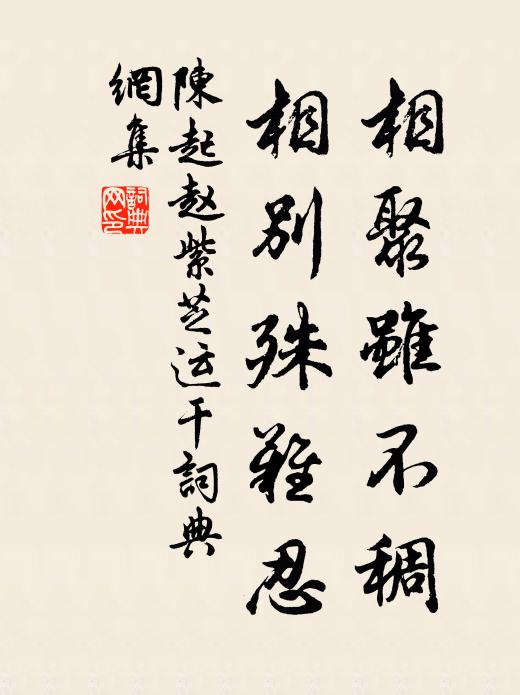 相聚雖不稠
相別殊難忍
陳起赵紫芝运干詞典
網集
詞典
网印